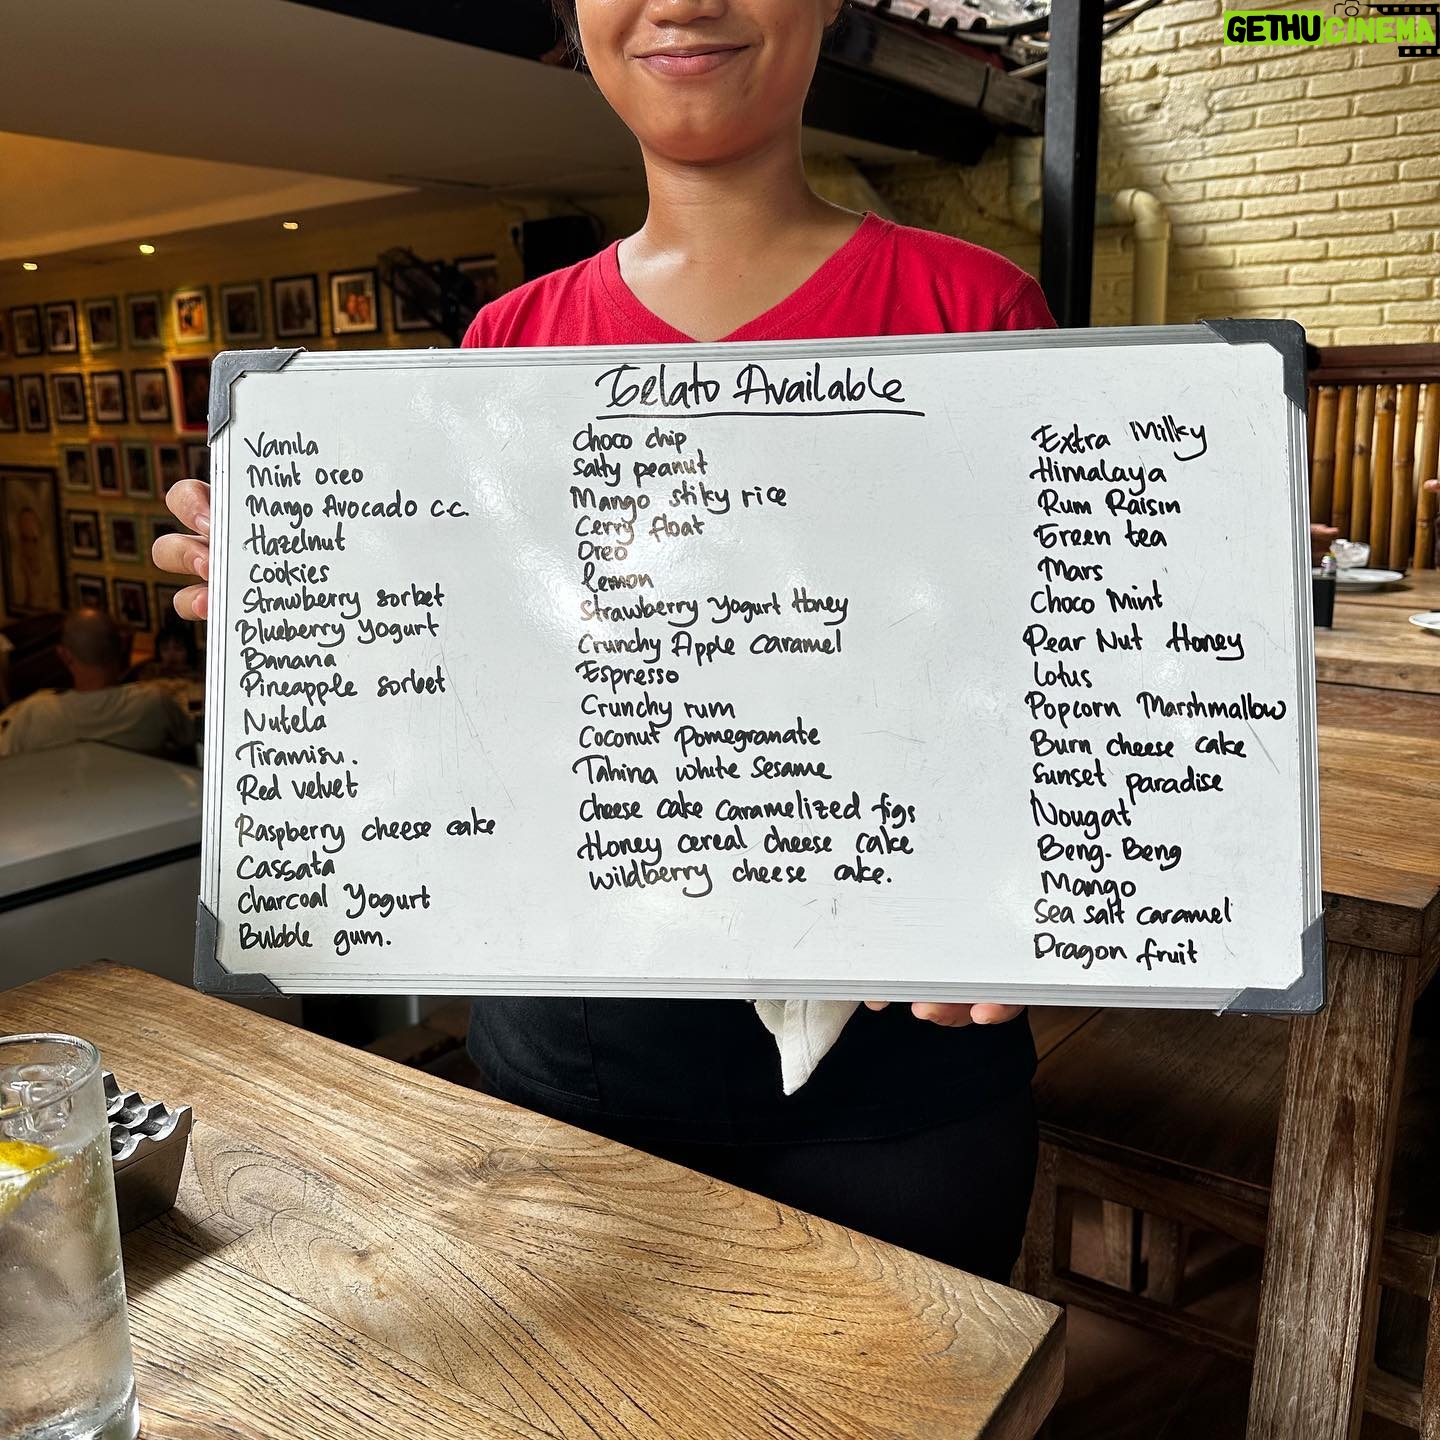 GETHUCINEMA
Gelato Available
Vanila
Mint oreo
Mango Avocado c.c.
Hazelnut
Cookies
Strawberry sorbet
Blueberry Yogurt
Banana
Pineapple sorbet
Nutela
Tiramisu.
Red velvet
Raspberry cheese cake
Cassata
Charcoal Yogurt
Bubble gum.
Choco chip
Salty peanut
Mango stiky rice
Cerry float
Oreo
lemon
Strawberry Yogurt Honey
Crunchy Apple caramel
Espresso
Crunchy rum
Coconut pomegranate
Tahina white sesame
Cheese cake caramelized figs
Honey cereal cheese cake
Wildberry cheese cake.
Extra Milky
Himalaya
Rum Raisin
Green tea
Mars
Choco Mint
Pear Nut Honey
Lotus
Popcorn Marshmallow
Burn cheese cake
Sunset paradise
Nougat
Beng-Beng
Mango
Sea salt caramel
Dragon fruit